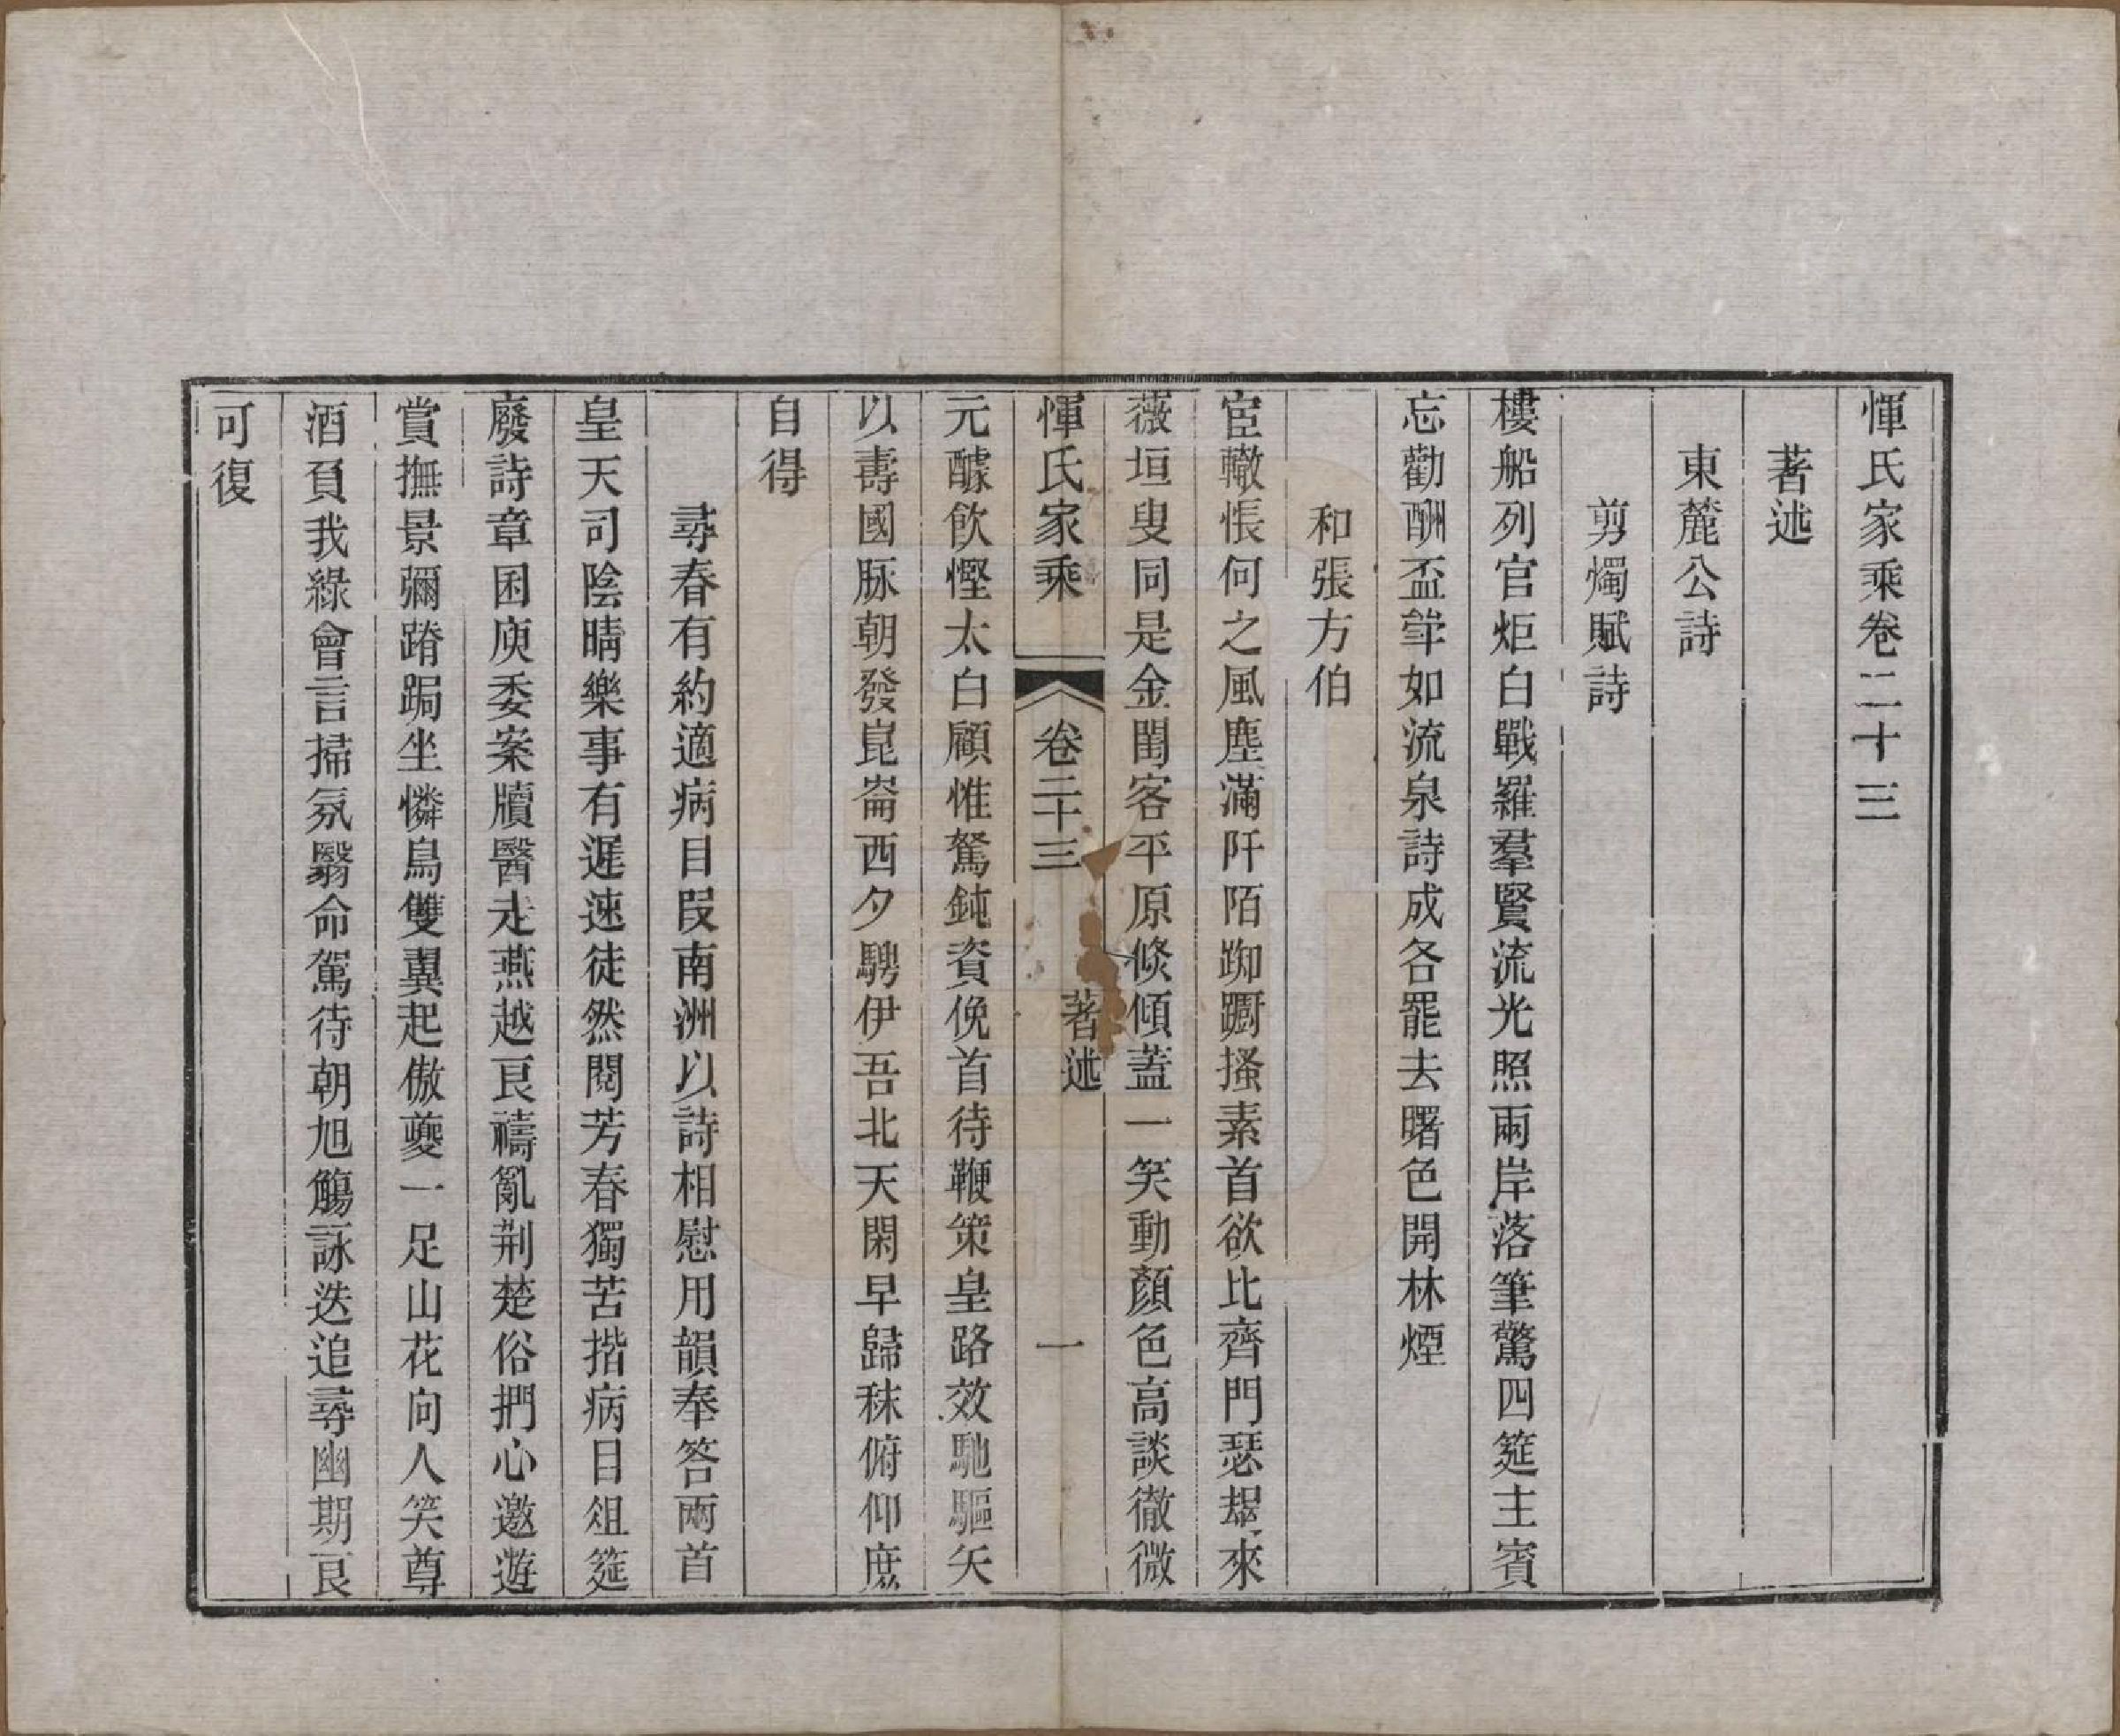 惲氏家乘卷二十三
著述
東麓公詩
剪燭賦詩
樓船列官炬白戰羅羣賢流光照兩岸落筆驚四筵主賓
忘勸酬盃斝如流泉詩成各罷去曙色開林煙
和張方伯
宦轍悵何之風塵滿阡陌踟躕搔素首欲比齊門瑟朅來
薇垣叟同是金閨客平原倐傾蓋一笑動顏色高談徹微
惲氏家乘 卷二十三 著述 一
元醵飲慳太白顧惟駑鈍資俛首待鞭策皇路效馳驅矢
以壽國脈朝發崑崙西夕騁伊吾北天閑早歸秣俯仰庶
自得
尋春有約適病目叚南洲以詩相慰用韻奉答兩首
皇天司陰晴樂事有遲速徒然閱芳春獨苦揩病目俎筵
廢詩章困庾委案牘醫走燕越良禱亂荆楚俗捫心邀遊
賞撫景彌蹐跼坐憐鳥雙翼起傲夔一足山花向人笑尊
酒頁我綠會言掃氛翳命駕待朝旭觴詠迭追尋幽期良
可復